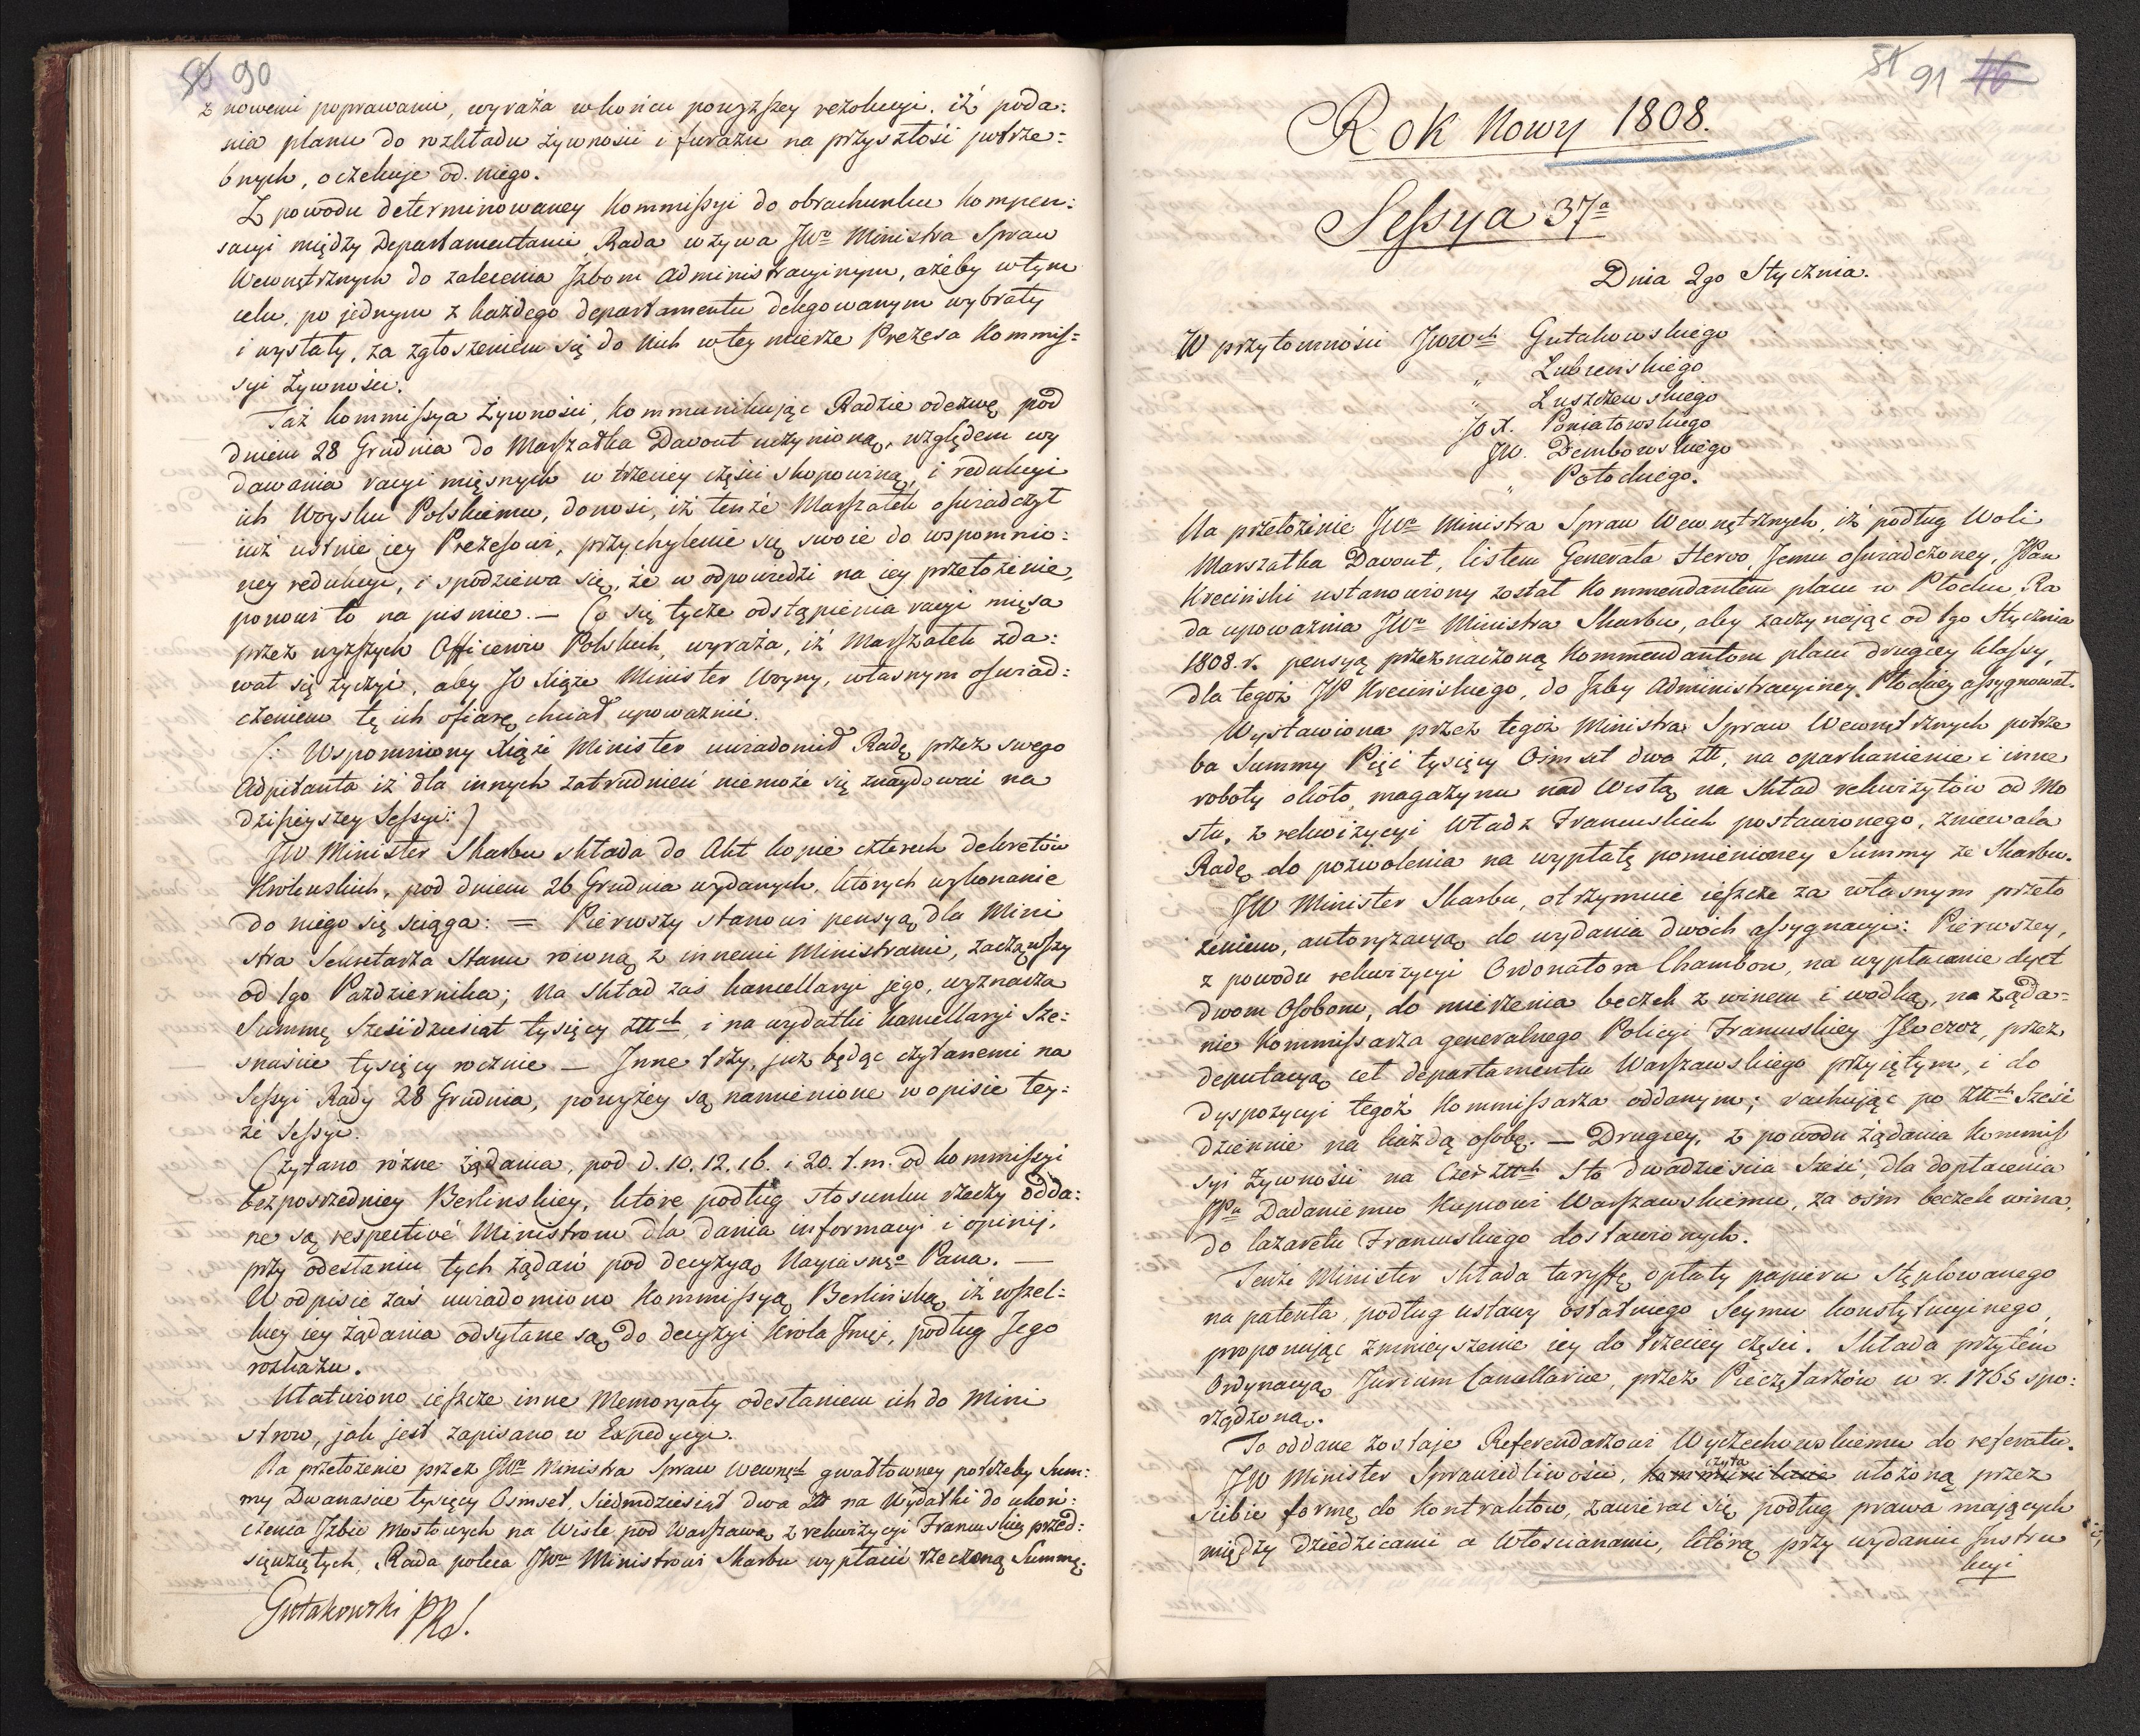 50 90
z nowemi poprawami, wyraża w końcu powyższey rezolucyi. iż poda:
nia planu do rozkładu żywności i furażu na przyszłość potrze=
bnych, oczekuje od niego.
Z powodu determinowaney Kommissyi do obrachunku kompen:
sacyi między Departamentami, Rada wzywa JWo Ministra Spraw
Wewnętrznych do zalecenia Izbom Administracyinym, ażeby w tym
celu, po jednym z każdego departamentu delegowanym wybrały
i wysłały, za zgłoszeniem się do nich w tey mierze Prezesa Kommis=
syi Żywności.
Taż Kommissya Żywności, kommunikując Radzie odezwę pod
dniem 28 Grudnia do Marszałka Davout uczynioną, względem wy
dawania racyi mięsnych w trzeciey części skopowiną, i redukcyi
ich Woysku Polskiemu, donosi, iż tenże Marszałek oświadczył
iuż ustnie iey Prezesowi, przychylenie się swoie do wspomnio:
ney redukcyi, i spodziewa się, że w odpowiedzi na iey przełożenie,
ponowi to na piśmie. — Co się tycze odstąpienia racyi mięsa
przez wyższych Officerów Polskich, wyraża, iż Marszałek zda:
wał się życzyć, aby JO Xiąże Minister Woyny, własnym oświad:
czeniem tę ich ofiarę chciał upoważnić.
(: Wspomniony Xiąże Minister uwiadomił Radę przez swego
Adjutanta iż dla innych zatrudnień niemoże się znaydować na
dzisieyszey Sessyi:)
JW Minister Skarbu składa do Akt kopie czterech dekretów
Królewskich, pod dniem 26 Grudnia wydanych, których wykonanie
do niego się ściąga: = Pierwszy stanowi pensyą dla Mini
stra Sekretarza Stanu równą z innemi Ministrami, zacząwszy
od 1go Października; na skład zaś kancellaryi jego, wyznacza
Summę Sześćdziesiąt tysięcy Złłch, i na wydatki kancellaryi Sze:
snaście tysięcy rocznie — Inne trzy, już będąc czytanemi na
Sessyi Rady 28 Grudnia, powyżey są namienione w opisie tey:
że Sessyi.
Czytano różne żądania, pod d. 10. 12. 16. i 20. t. m. od Kommissyi
bezpośredniey Berlinskiey, które podług stosunku rzeczy odda:
ne są respective Ministrom dla dania informacyi i opinij,
przy odesłaniu tych żądań pod decyzyą Nayiaśnego Pana. —
W odpisie zaś uwiadomiono Kommissyą Berlińską iż wszel=
kiey iey żądania odsyłane są do decyzyi Króla Jmci, podług Jego
rozkazu.
Ułatwiono ieszcze inne Memoryały odesłaniem ich do Mini
strow, jak jest zapisano w Expedycyi.
Na przełożenie przez JWo Ministra Spraw Wewnętch gwałtowney potrzeby Sum:
my Dwanaście tysięcy Osmset, Siedmdziesiąt dwa Złł na wydatki do ukoń:
czenia Izbic Mostowych na Wiśle pod Warszawą z rekwizycyi Francuskiey przed:
sięwziętych, Rada poleca JWu Ministrowi Skarbu wypłacić rzeczoną Summę.
Gutakowski PRS.
51 91 46
Rok Nowy 1808.
Sessya 37a
Dnia 2go Stycznia.
W przytomności JWWch Gutakowskiego
" Łubieńskiego
" Łuszczewskiego
JO X. Poniatowskiego
JW. Dembowskiego
" Potockiego.
Na przełożenie JWo Ministra Spraw Wewnętrznych, iż podług Woli
Marszałka Davout, listem Generała Hervo, Jemu oświadczoney, JPan
Kreciński ustanowiony został Kommendantem placu w Płocku, Ra
da upoważnia JWo Ministra Skarbu, aby zaczynając od 1go Stycznia
1808. r. pensyą przeznaczoną Kommendantom placu drugiey klassy,
dla tegoż JP Krecińskiego, do Izby Administracyiney Płockiey assygnował.
Wystawiona przez tegoż Ministra Spraw Wewnętrznych potrze
ba Summy Pięć tysięcy Osmset dwa Złł, na oparkanienie i inne
roboty około magazynu nad Wisłą na skład rekwizytów od Mo
stu, z rekwizycyi Władz Francuskich postawionego, zniewala
Radę do pozwolenia na wypłatę pomienioney Summy ze Skarbu.
JW Minister Skarbu, otrzymuie ieszcze za własnym przeło
żeniem, autoryzacyą do wydania dwoch assygnacyi: Pierwszey,
z powodu rekwizycyi Ordonatora Chambon, na wypłacanie dyet
dwom Osobom, do mierzenia beczek z winem i wodką, na żąda=
nie Kommissarza generalnego Policyi Francuskiey, przez
deputacyą cet departamentu Warszawskiego przyiętym, i do
dyspozycyi tegoż Kommissarza oddanym; rachując po Złłch Sześć
dziennie na każdą osobę. — Drugiey, z powodu żądania Kommis
syi Żywności na Czer Złłch Sto dwadzieścia Sześć, dla dopłacenia
JPu Dadaniemu Kupcowi Warszawskiemu, za ośm beczek wina,
do lazaretu Francuskiego dostawionych.
Tenże Minister składa taryffę opłaty papieru Stęplowanego
na patenta, podług ustawy ostatniego Seymu konstytucyinego,
proponując zmnieyszenie iey do trzeciey części. Składa przytém
Ordynacyą Jurium Cancellariae, przez Pieczętarzów w r. 1765 spo:
rządzoną.
To oddane zostaje Referendarzowi Wyczechowskiemu do referatu.
JW Minister Sprawiedliwości, kommunikuie czyta ułożoną przez
siebie formę do Kontraktów, zawierać się podług prawa mających
między dziedzicami a Włościanami, którą przy wydaniu Instru
kcyi